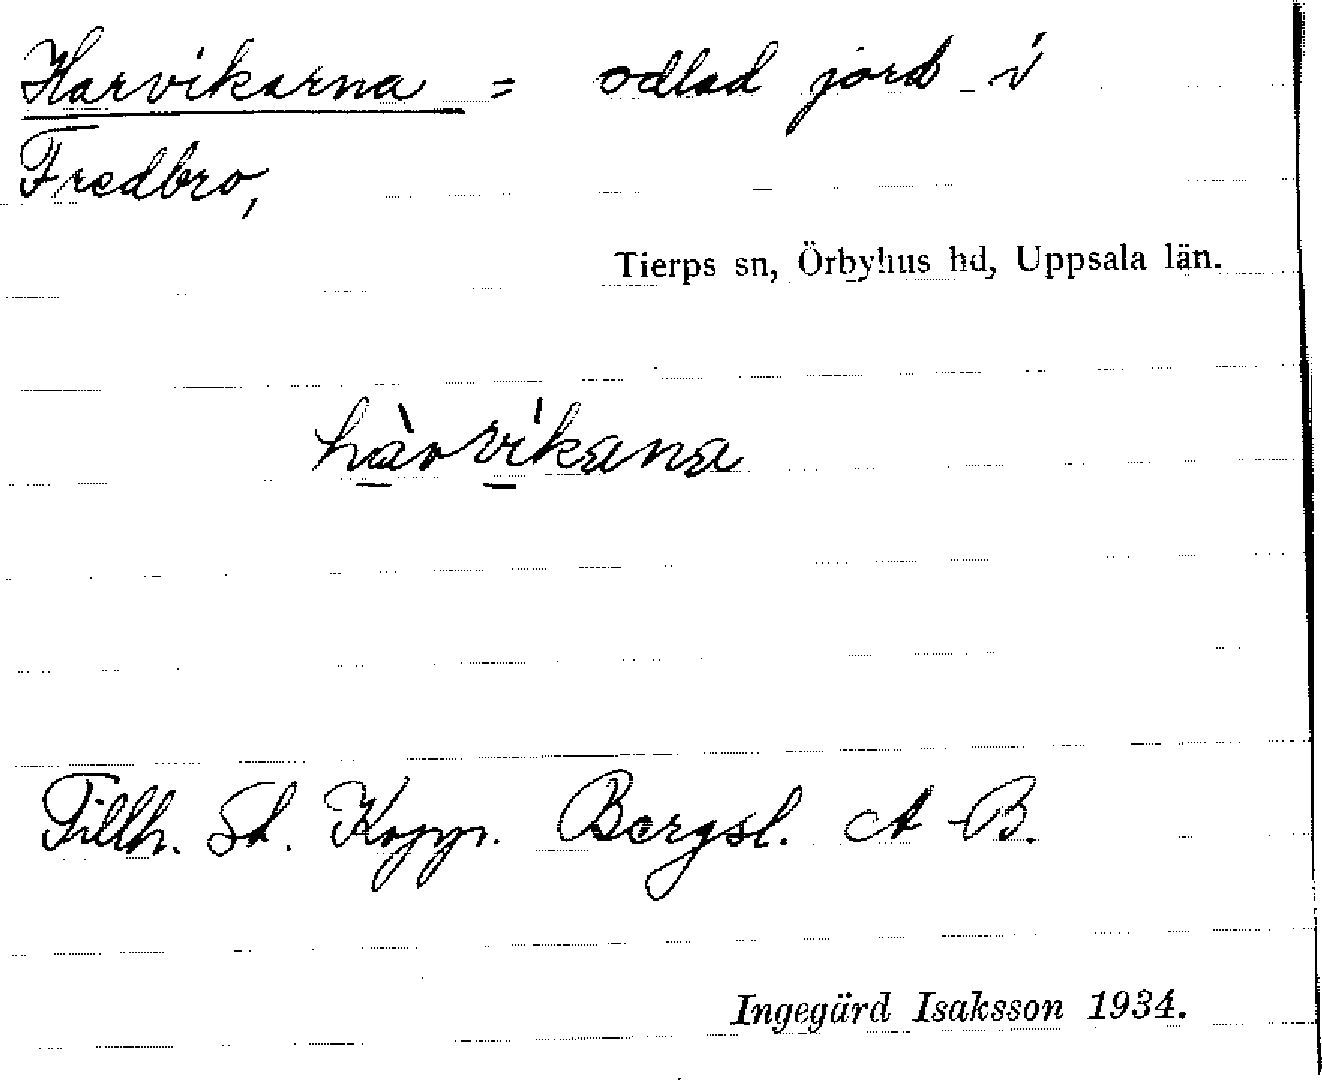 Harvikarna = odlad jord i
Fredbro,
Tierps sn, Örbyhus hd, Uppsala län.
hàrvíkana
Tillh. St. Kopp. Bergsl. A-B.
Ingegärd Isaksson 1934.